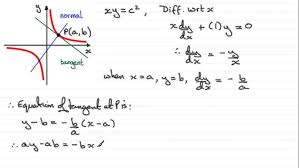 y
normal
P(a,b)
x
tangent
xy = c², Diff. wrt x
x dy/dx + (1)y = 0
∴ dy/dx = -y/x
when x = a, y = b, dy/dx = -b/a
∴ Equation of tangent at P is:
y - b = -b/a (x - a)
∴ ay - ab = -bx +